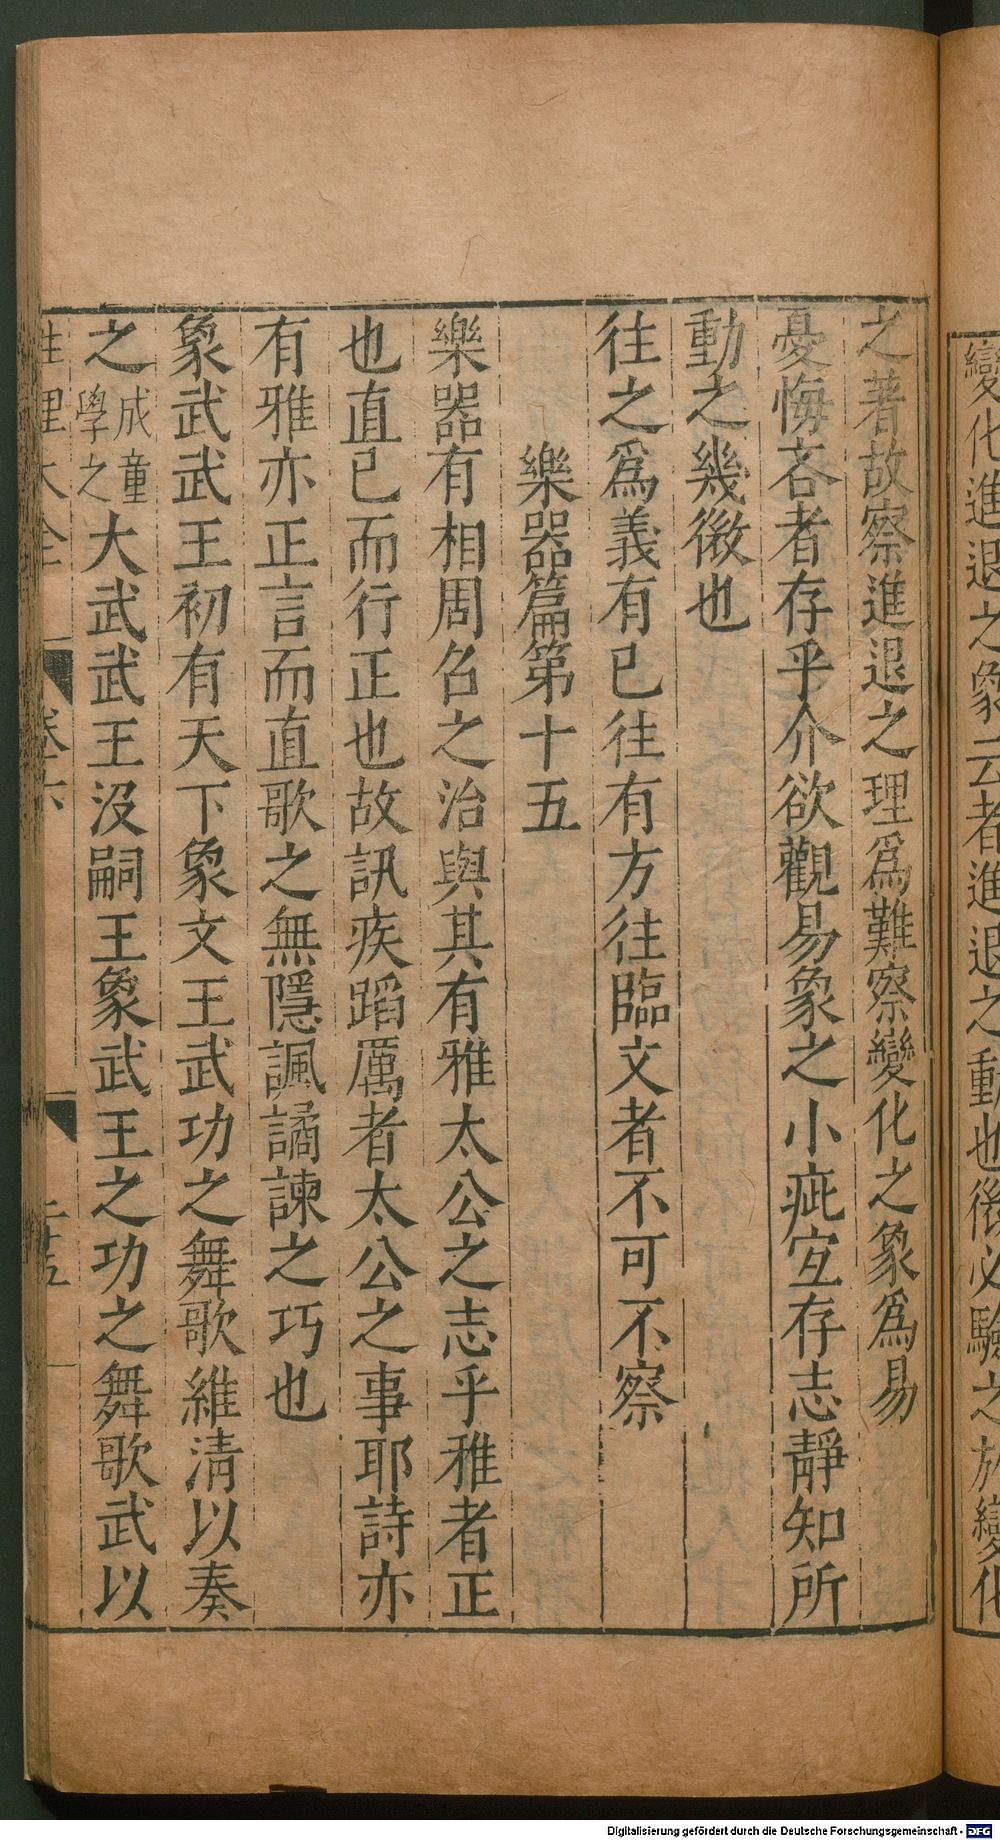 變化進退之象云者進退之動也微必驗之於變化
之著故察進退之理爲難察變化之象爲易
憂悔吝者存乎介欲觀易象之小疵宜存志靜知所
動之幾微也
往之爲義有已往有方往臨文者不可不察
樂器篇第十五
樂器有相周召之治與其有雅太公之志乎雅者正
也直已而行正也故訊疾蹈厲者太公之事耶詩亦
有雅亦正言而直歌之無隱諷譎諫之巧也
象武武王初有天下象文王武功之舞歌維清以奏
之成童學之大武武王沒嗣王象武王之功之舞歌武以
性理大全 卷六 二十五
Digitalisierung gefördert durch die Deutsche Forschungsgemeinschaft - DFG